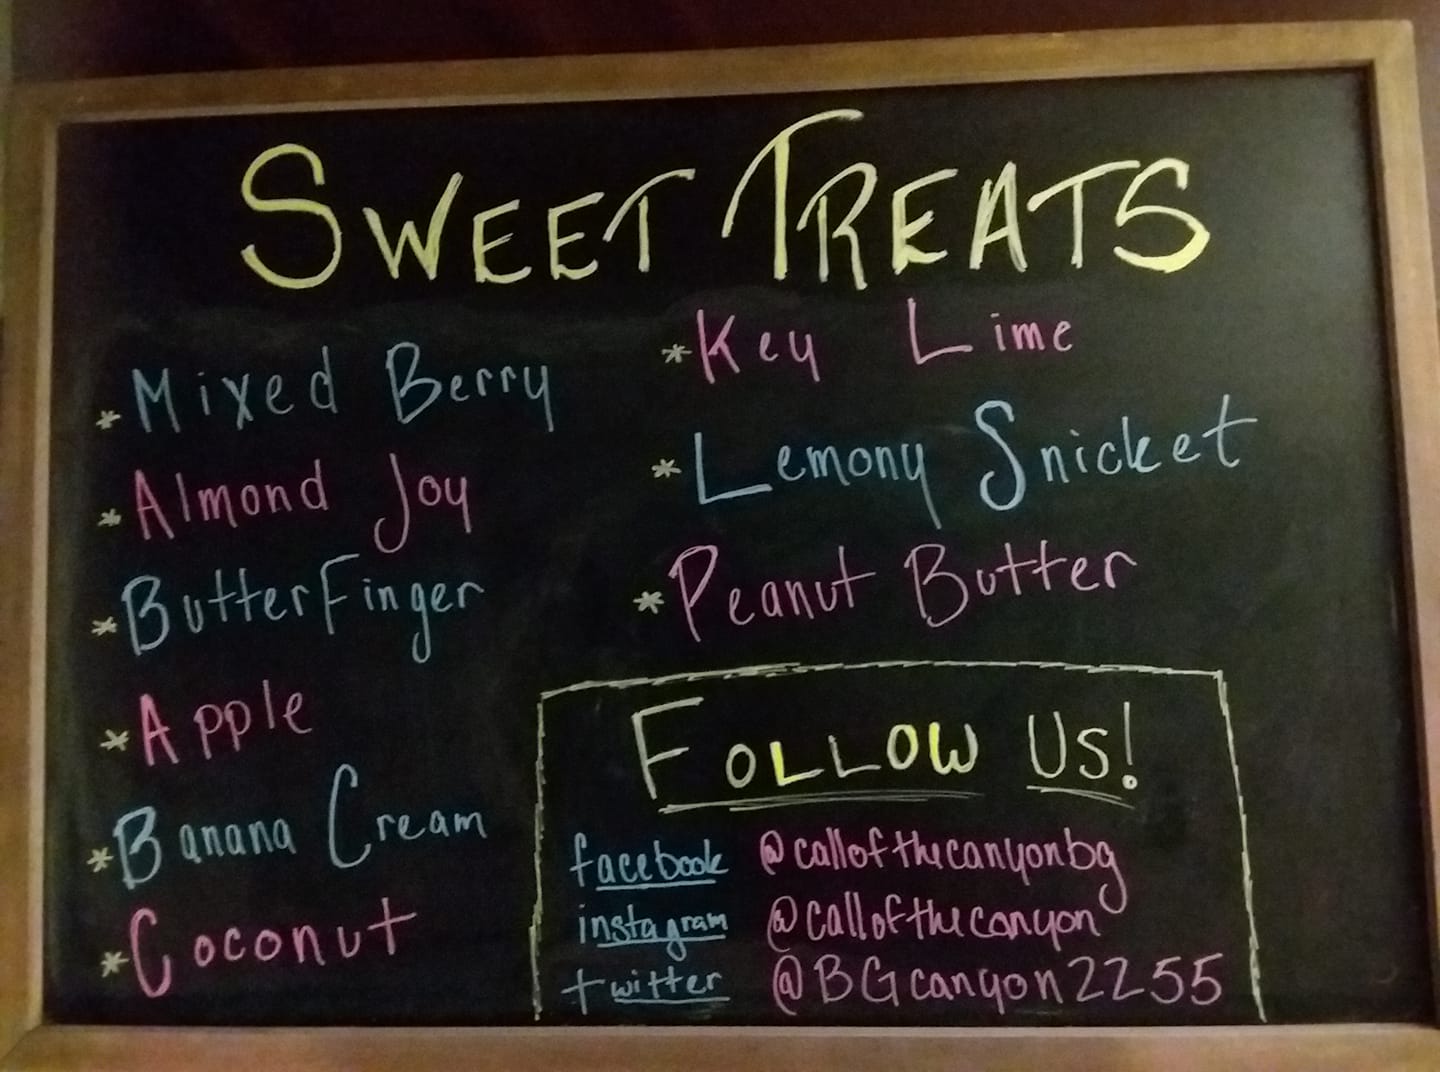 SWEET TREATS
* Mixed Berry
* Almond Joy
* ButterFinger
* Apple
* Banana Cream
* Coconut
* Key Lime
* Lemony Snicket
* Peanut Butter
FOLLOW US!
facebook @callofthecanyonbg
instagram @callofthecanyon
twitter @BGcanyon2255